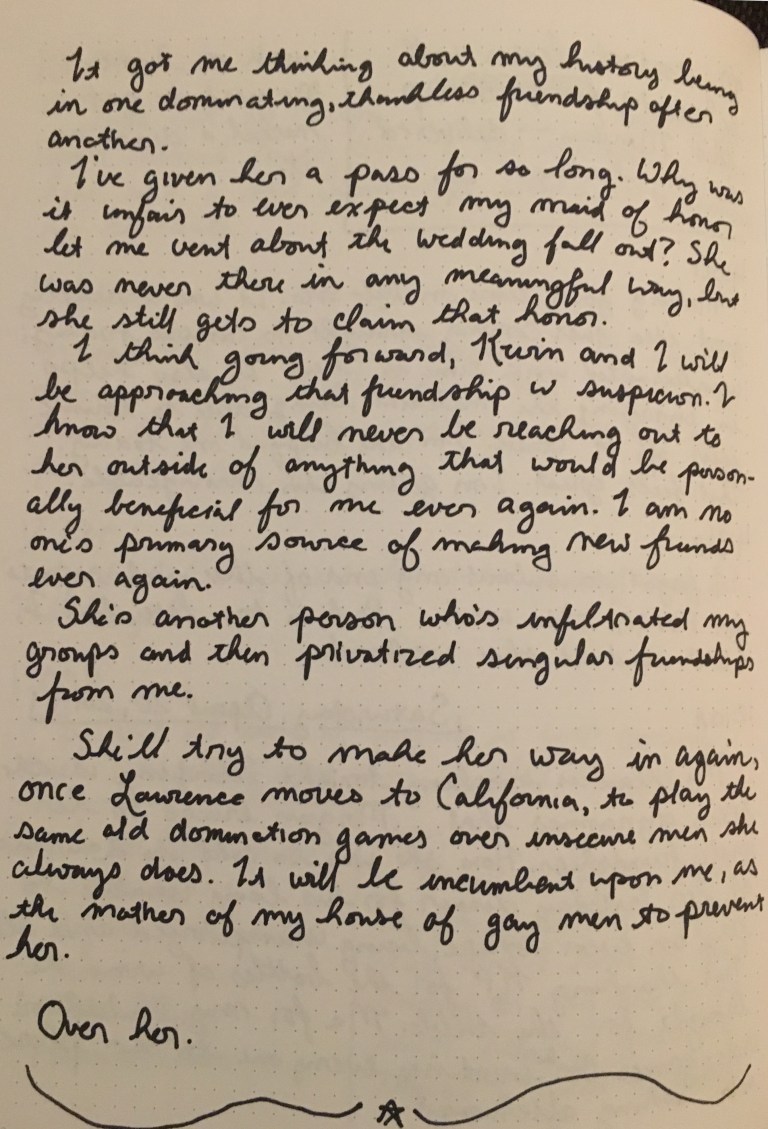 It got me thinking about my history being
in one dominating, thankless friendship after
another.
I've given her a pass for so long. Why was
it unfair to ever expect my maid of honor
let me vent about the wedding fall out? She
was never there in any meaningful way, but
she still gets to claim that honor.
I think going forward, Kevin and I will
be approaching that friendship w suspicion. I
know that I will never be reaching out to
her outside of anything that would be person-
ally beneficial for me ever again. I am no
one's primary source of making new friends
ever again.
She's another person who's infiltrated my
groups and then privatized singular friendships
from me.
She'll try to make her way in again,
once Lawrence moves to California, to play the
same old domination games over insecure men she
always does. It will be incumbent upon me, as
the mother of my house of gay men to prevent
her.
Over her.